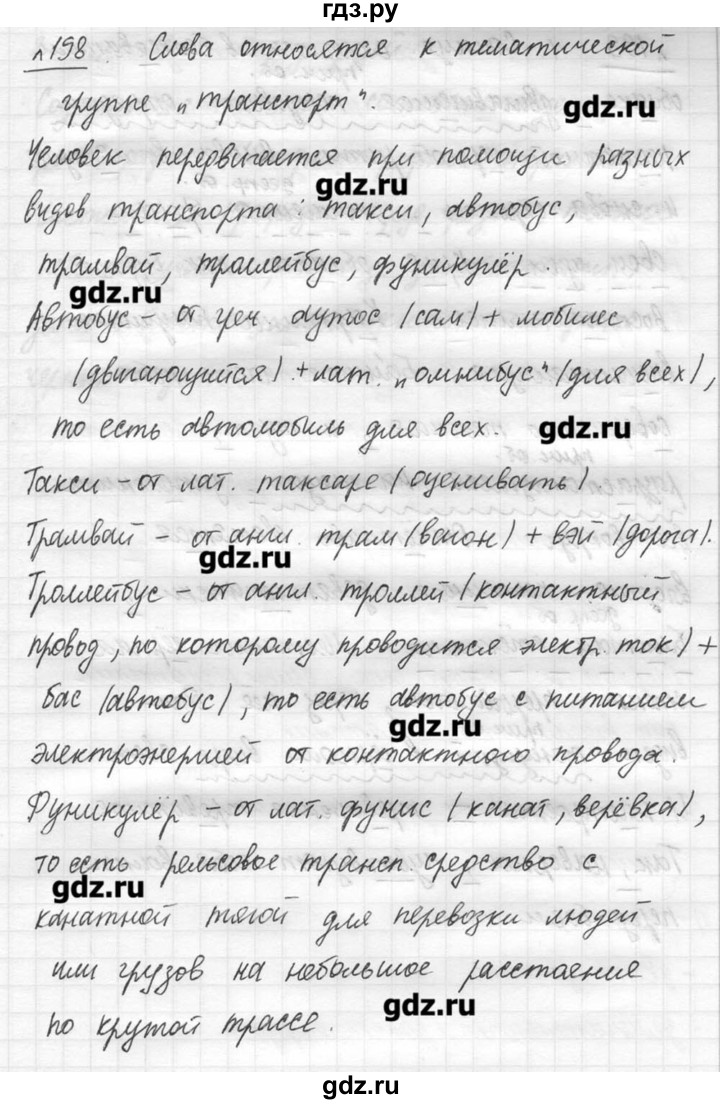 гдз.ру
n198. Слова относятся к тематической
группе „транспорт".
gdz.ru
Человек передвигается при помощи разных
gdz.ru
видов транспорта: такси, автобус,
трамвай, троллейбус, фуникулёр.
gdz.ru
Автобус – от греч аутос (сам) + мобилес
(двигающийся) + лат. „омнибус" (для всех),
то есть автомобиль для всех.
gdz.ru
Такси – от лат. таксаре (оценивать)
Трамвай – от англ. трам (вагон) + вэй (дорога).
gdz.ru
Троллейбус – от англ. троллей (контактный
провод, по которому проводится электр. ток) +
бас (автобус), то есть автобус с питанием
gdz.ru
электроэнергией от контактного провода.
Фуникулёр – от лат. фунис (канат, верёвка),
то есть рельсовое трансп. средство с
gdz.ru
канатной тягой для перевозки людей
или грузов на небольшое расстояние
gdz.ru
по крутой трассе.
gdz.ru